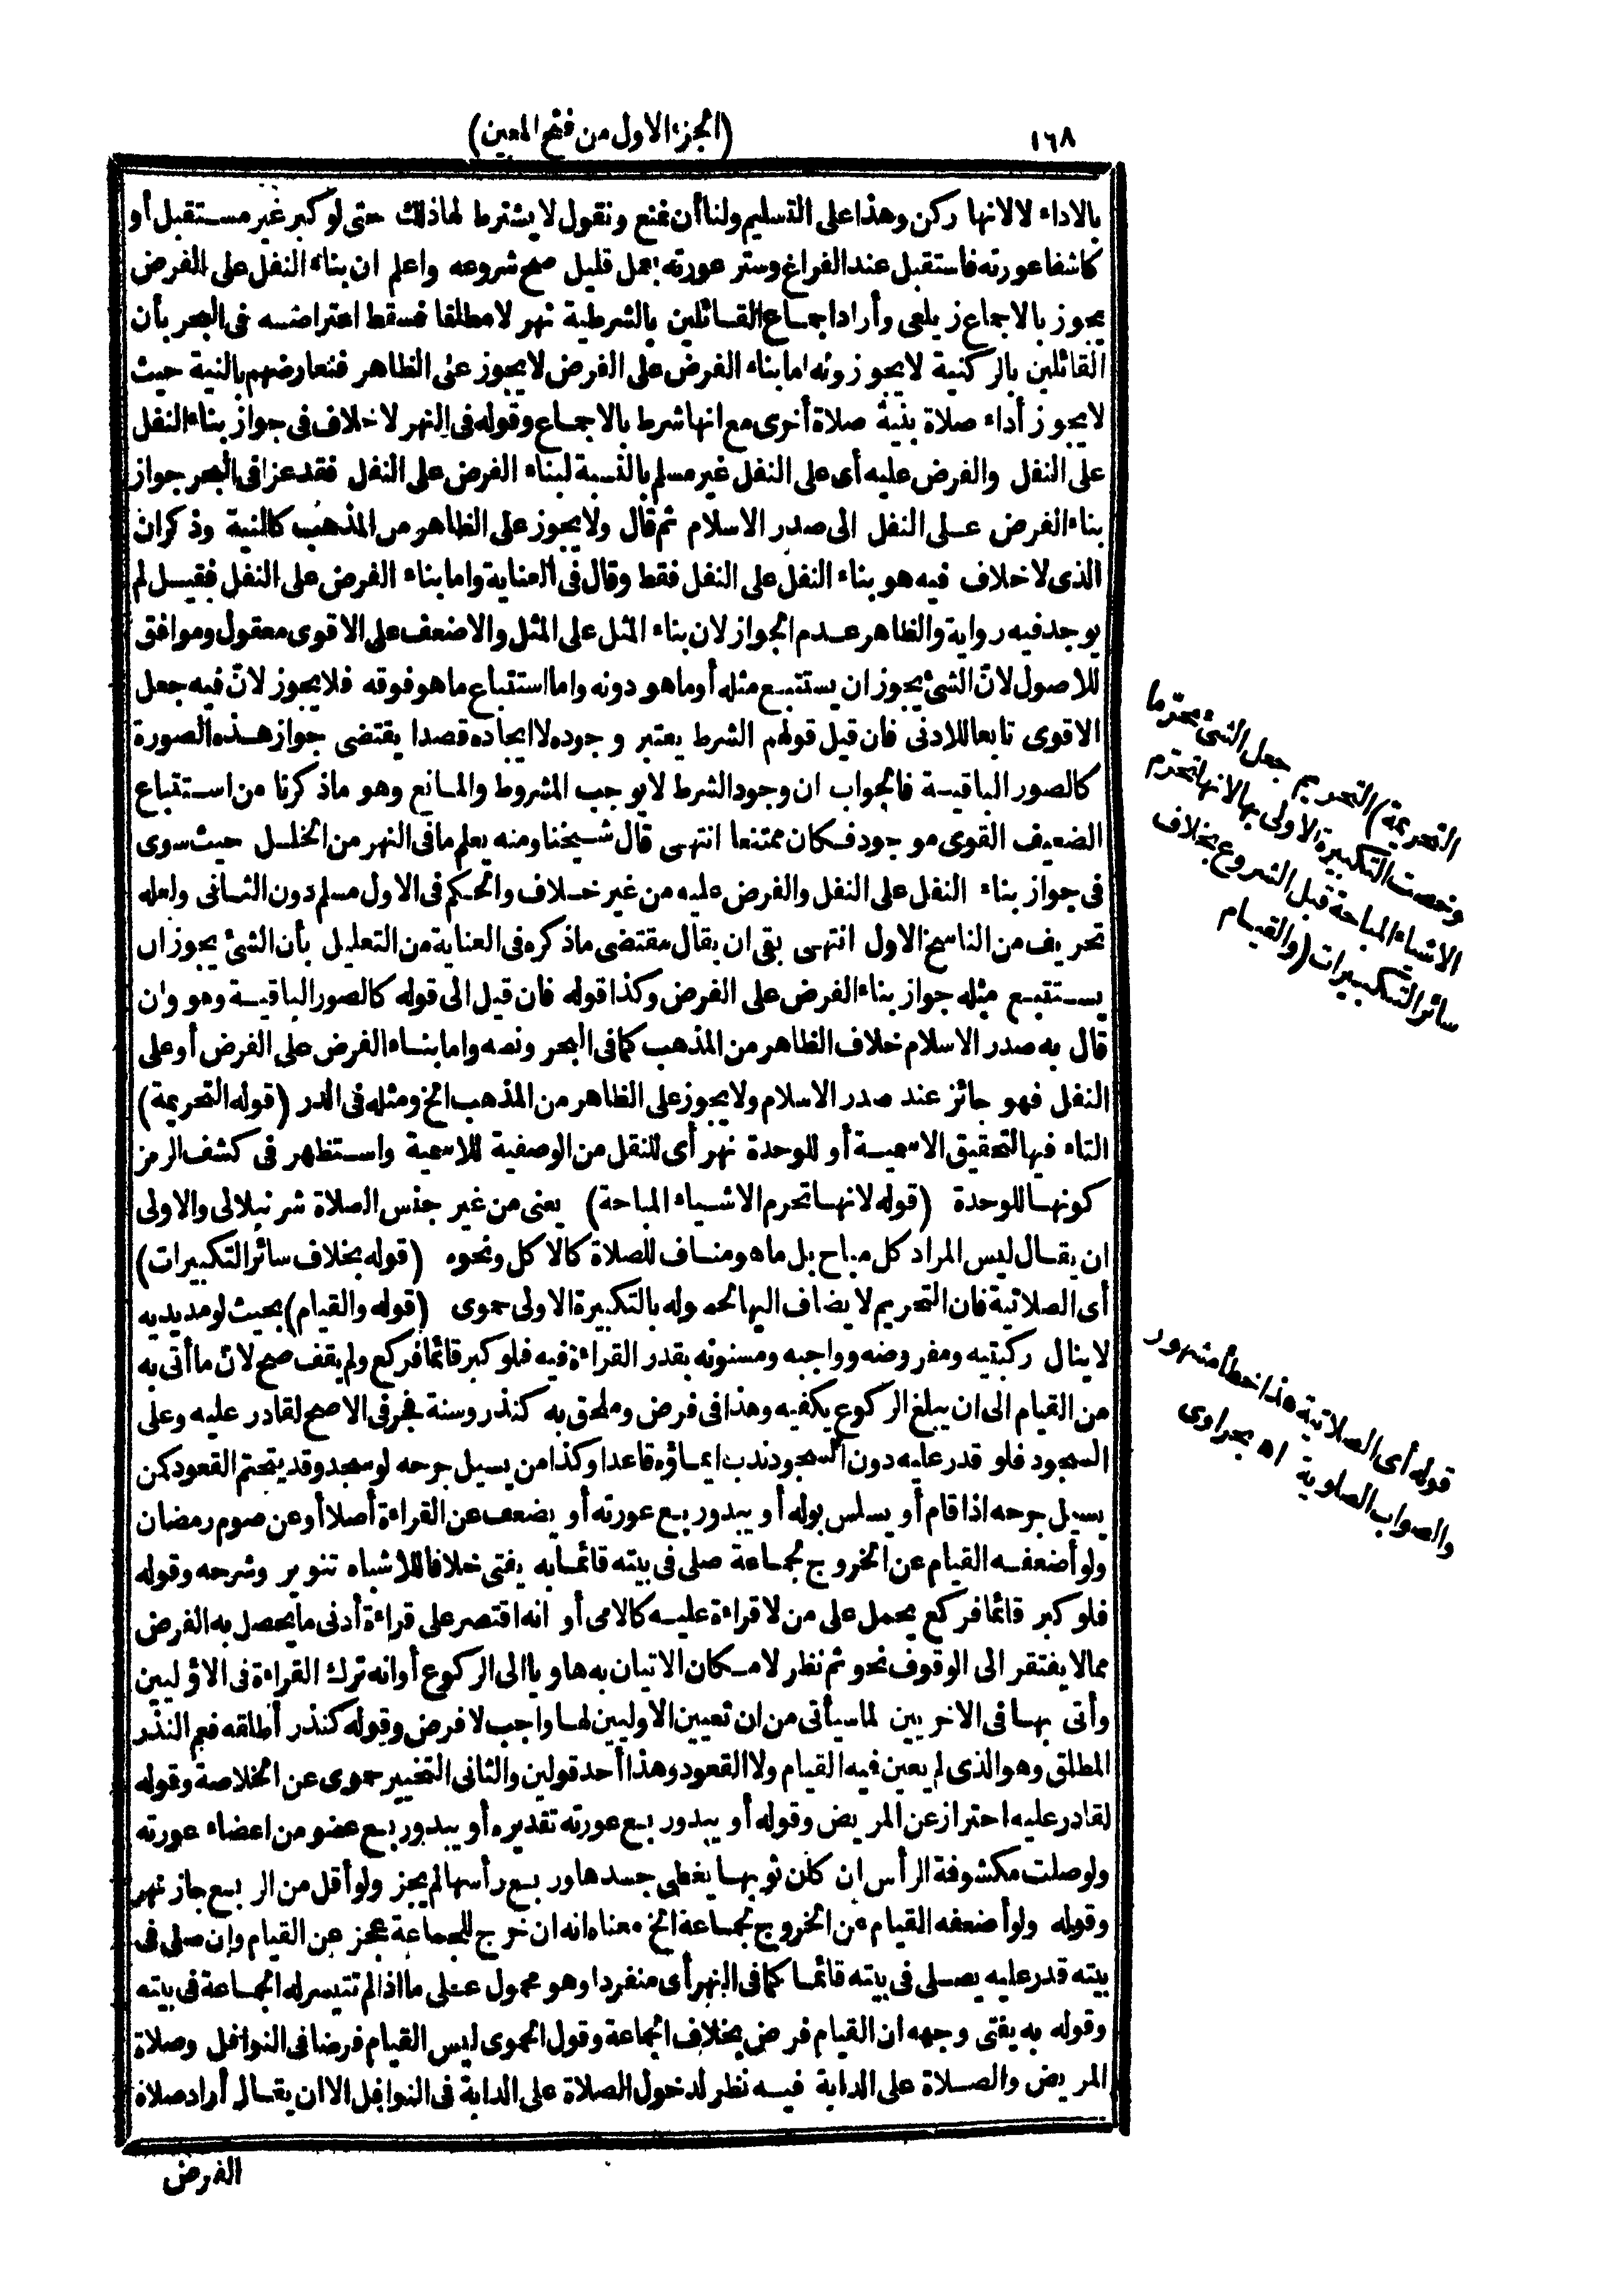 ١٦٨
(الجزء الاول من فتح المعين)
بالاداء لا لانها ركن وهذا على التسليم ولنا أن نمنع ونقول لا يشترط لها ذلك حتى لو كبر غير مستقبل أو
كاشفا عورته فاستقبل عند الفراغ وستر عورته بعمل قليل صح شروعه واعلم ان بناء النفل على الفرض
يجوز بالاجماع زيلعى وأراد اجماع القائلين بالشرطية نهر لا مطلقا فسقط اعتراضه فى البحر بأن
القائلين بالركنية لا يجوزونه اما بناء الفرض على الفرض لا يجوز على الظاهر فتعارضهم بالنية حيث
لا يجوز أداء صلاة بنية صلاة أخرى مع انها شرط بالاجماع وقوله فى النهر لا خلاف فى جواز بناء النفل
على النفل والفرض عليه أى على النفل غير مسلم بالنسبة لبناء الفرض على النفل فقد عزا فى البحر جواز
بناء الفرض على النفل الى صدر الاسلام ثم قال ولا يجوز على الظاهر من المذهب كالنية وذكر ان
الذى لا خلاف فيه هو بناء النفل على النفل فقط وقال فى العناية واما بناء الفرض على النفل فقيل لم
يوجد فيه رواية والظاهر عدم الجواز لان بناء المثل على المثل والاضعف على الاقوى معقول وموافق
للاصول لانّ الشئ يجوز ان يستتبع مثله أو ما هو دونه واما استتباع ما هو فوقه فلا يجوز لانّ فيه جعل
الاقوى تابعا للادنى فان قيل قولهم الشرط يعتبر وجوده لا ايجاده قصدا يقتضى جواز هذه الصورة
كالصور الباقية فالجواب ان وجود الشرط لا يوجب المشروط والمانع وهو ماذكرنا من استتباع
الضعيف القوى موجود فكان ممتنعا انتهى قال شيخنا ومنه يعلم ما فى النهر من الخلل حيث سوى
فى جواز بناء النفل على النفل والفرض عليه من غير خلاف والحكم فى الاول مسلم دون الثانى ولعله
تحريف من الناسخ الاول انتهى بقى ان يقال مقتضى ماذكره فى العناية من التعليل بأن الشئ يجوز ان
يستتبع مثله جواز بناء الفرض على الفرض وكذا قوله فان قيل الى قوله كالصور الباقية وهو وان
قال به صدر الاسلام خلاف الظاهر من المذهب كما فى البحر ونصه واما بناء الفرض على الفرض أو على
النفل فهو جائز عند صدر الاسلام ولا يجوز على الظاهر من المذهب الخ ومثله فى الدر (قوله التحريمة)
التاء فيها لتحقيق الاسمية أو للوحدة نهر أى للنقل من الوصفية للاسمية واستظهر فى كشف الرمز
كونها للوحدة (قوله لانها تحرم الاشياء المباحة) يعنى من غير جنس الصلاة شرنبلالى والاولى
ان يقال ليس المراد كل مباح بل ما هو مناف للصلاة كالاكل ونحوه (قوله بخلاف سائر التكبيرات)
أى الصلاتية فان التحريم لا يضاف اليها لحصوله بالتكبيرة الاولى حموى (قوله والقيام) بحيث لو مد يديه
لا ينال ركبتيه ومفروضه وواجبه ومسنونه بقدر القراءة فيه فلو كبر قائما فركع ولم يقف صح لانّ ما أتى به
من القيام الى ان يبلغ الركوع يكفيه وهذا فى فرض وملحق به كنذر وسنة فجر فى الاصح لقادر عليه وعلى
السجود فلو قدر عليه دون السجود ندب ايماؤه قاعدا وكذا من يسيل جرحه لو سجد وقد يتحتم القعود كمن
يسيل جرحه اذا قام أو يسلس بوله أو يبدو ربع عورته أو يضعف عن القراءة أصلا أو عن صوم رمضان
ولو أضعفه القيام عن الخروج لجماعة صلى فى بيته قائما به يفتى خلافا للاشباه تنوير وشرحه وقوله
فلو كبر قائما فركع يحمل على من لا قراءة عليه كالامى أو انه اقتصر على قراءة أدنى ما يحصل به الفرض
مما لا يفتقر الى الوقوف نحو ثم نظر لامكان الاتيان به هاويا الى الركوع أو انه ترك القراءة فى الاوّليين
وأتى بها فى الاخريين لما سيأتى من ان تعيين الاوليين لها واجب لا فرض وقوله كنذر أطلقه فعم النذر
المطلق وهو الذى لم يعين فيه القيام ولا القعود وهذا أحد قولين والثانى التخيير حموى عن الخلاصة وقوله
لقادر عليه احتراز عن المريض وقوله أو يبدو ربع عورته تقديره أو يبدو ربع عضو من اعضاء عورته
ولو صلت مكشوفة الرأس ان كان ثوبها يغطى جسدها وربع رأسها لم يجز ولو أقل من الربع جاز نهر
وقوله ولو أضعفه القيام عن الخروج لجماعة الخ معناه انه ان خرج للجماعة عجز عن القيام وان صلى فى
بيته قدر عليه يصلى فى بيته قائما كما فى النهر أى منفردا وهو محمول على ما اذا لم تتيسر له الجماعة فى بيته
وقوله به يفتى وجهه ان القيام فرض بخلاف الجماعة وقول الحموى ليس القيام فرضا فى النوافل وصلاة
المريض والصلاة على الدابة فيه نظر لدخول الصلاة على الدابة فى النوافل الا ان يقال أراد صلاة
الفرض
التحريمة) التحريم جعل الشئ محرّما
وخصت التكبيرة الاولى بها لانها تحرم
الاشياء المباحة قبل الشروع بخلاف
سائر التكبيرات (والقيام
قوله أى الصلاتية هذا خطأ مشهور
والصواب الصلوية اه بحراوى